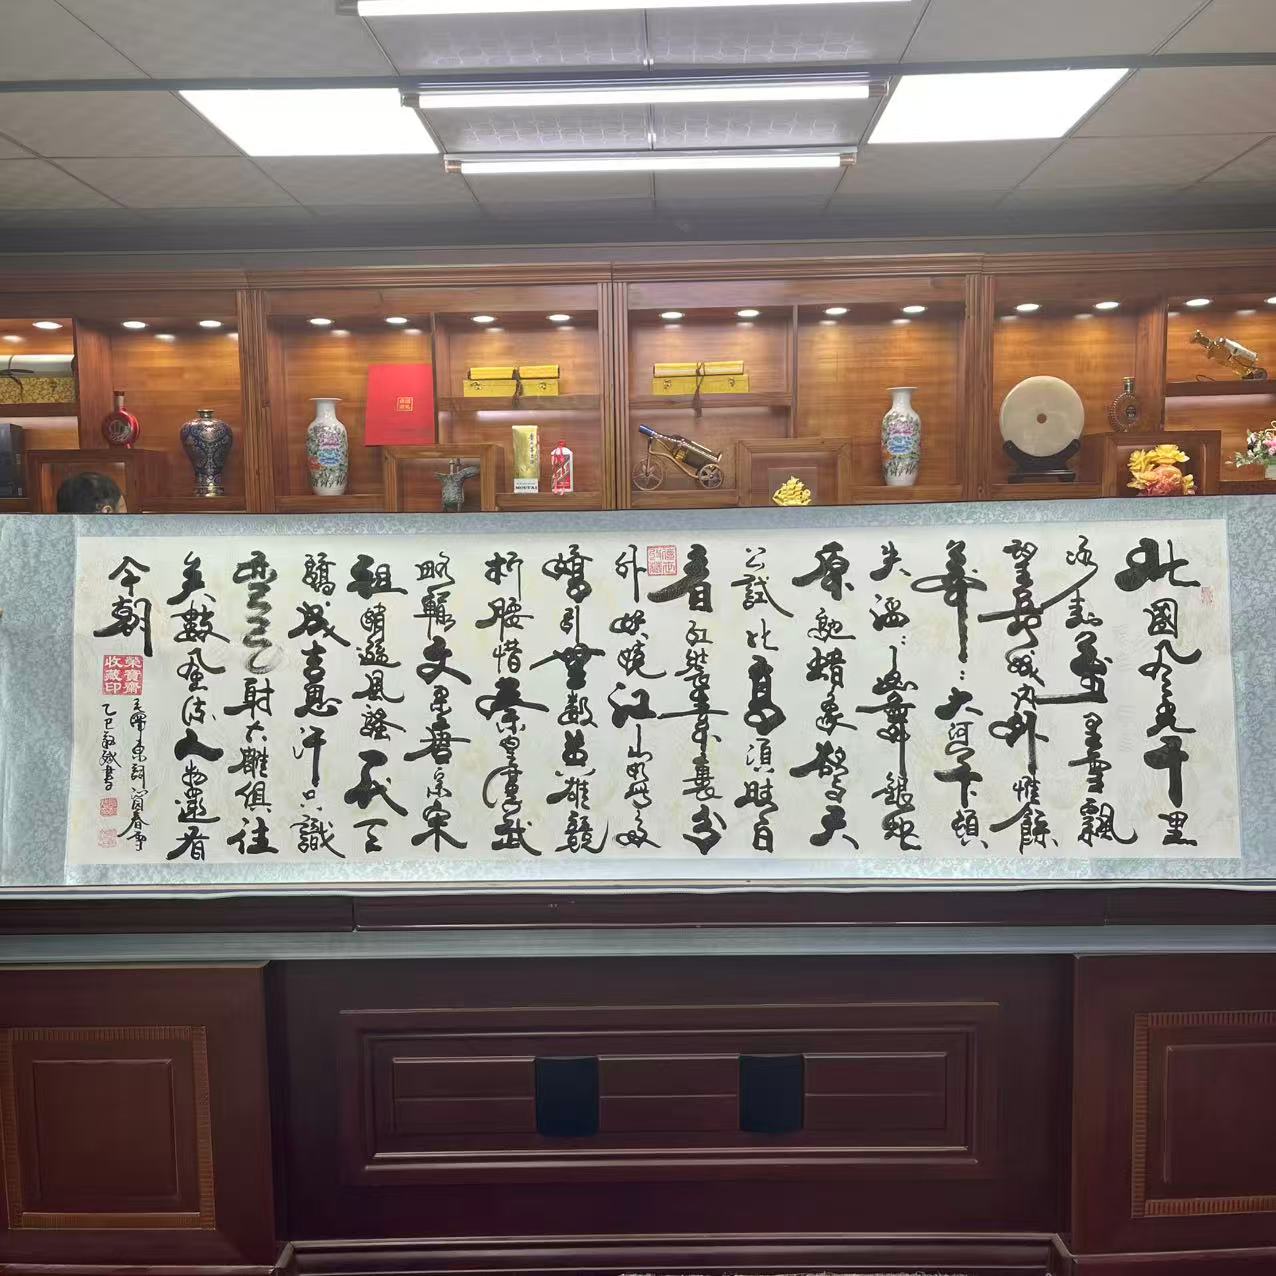 北國風光千里
冰封萬里雪飄
望長城內外惟餘
莽〻大河上下頓
失滔〻山舞銀蛇
原馳蠟象欲與天
公試比高須晴日
看紅裝素裹分
外妖嬈江山如此多
嬌引無數英雄競
折腰惜秦皇漢武
略輸文采唐宗宋
祖稍遜風騷一代天
驕成吉思汗只識
彎弓射大雕俱往
矣數風流人物還看
今朝
毛澤東詞沁園春雪
乙巳書
榮寶齋收藏印
MOUTAI